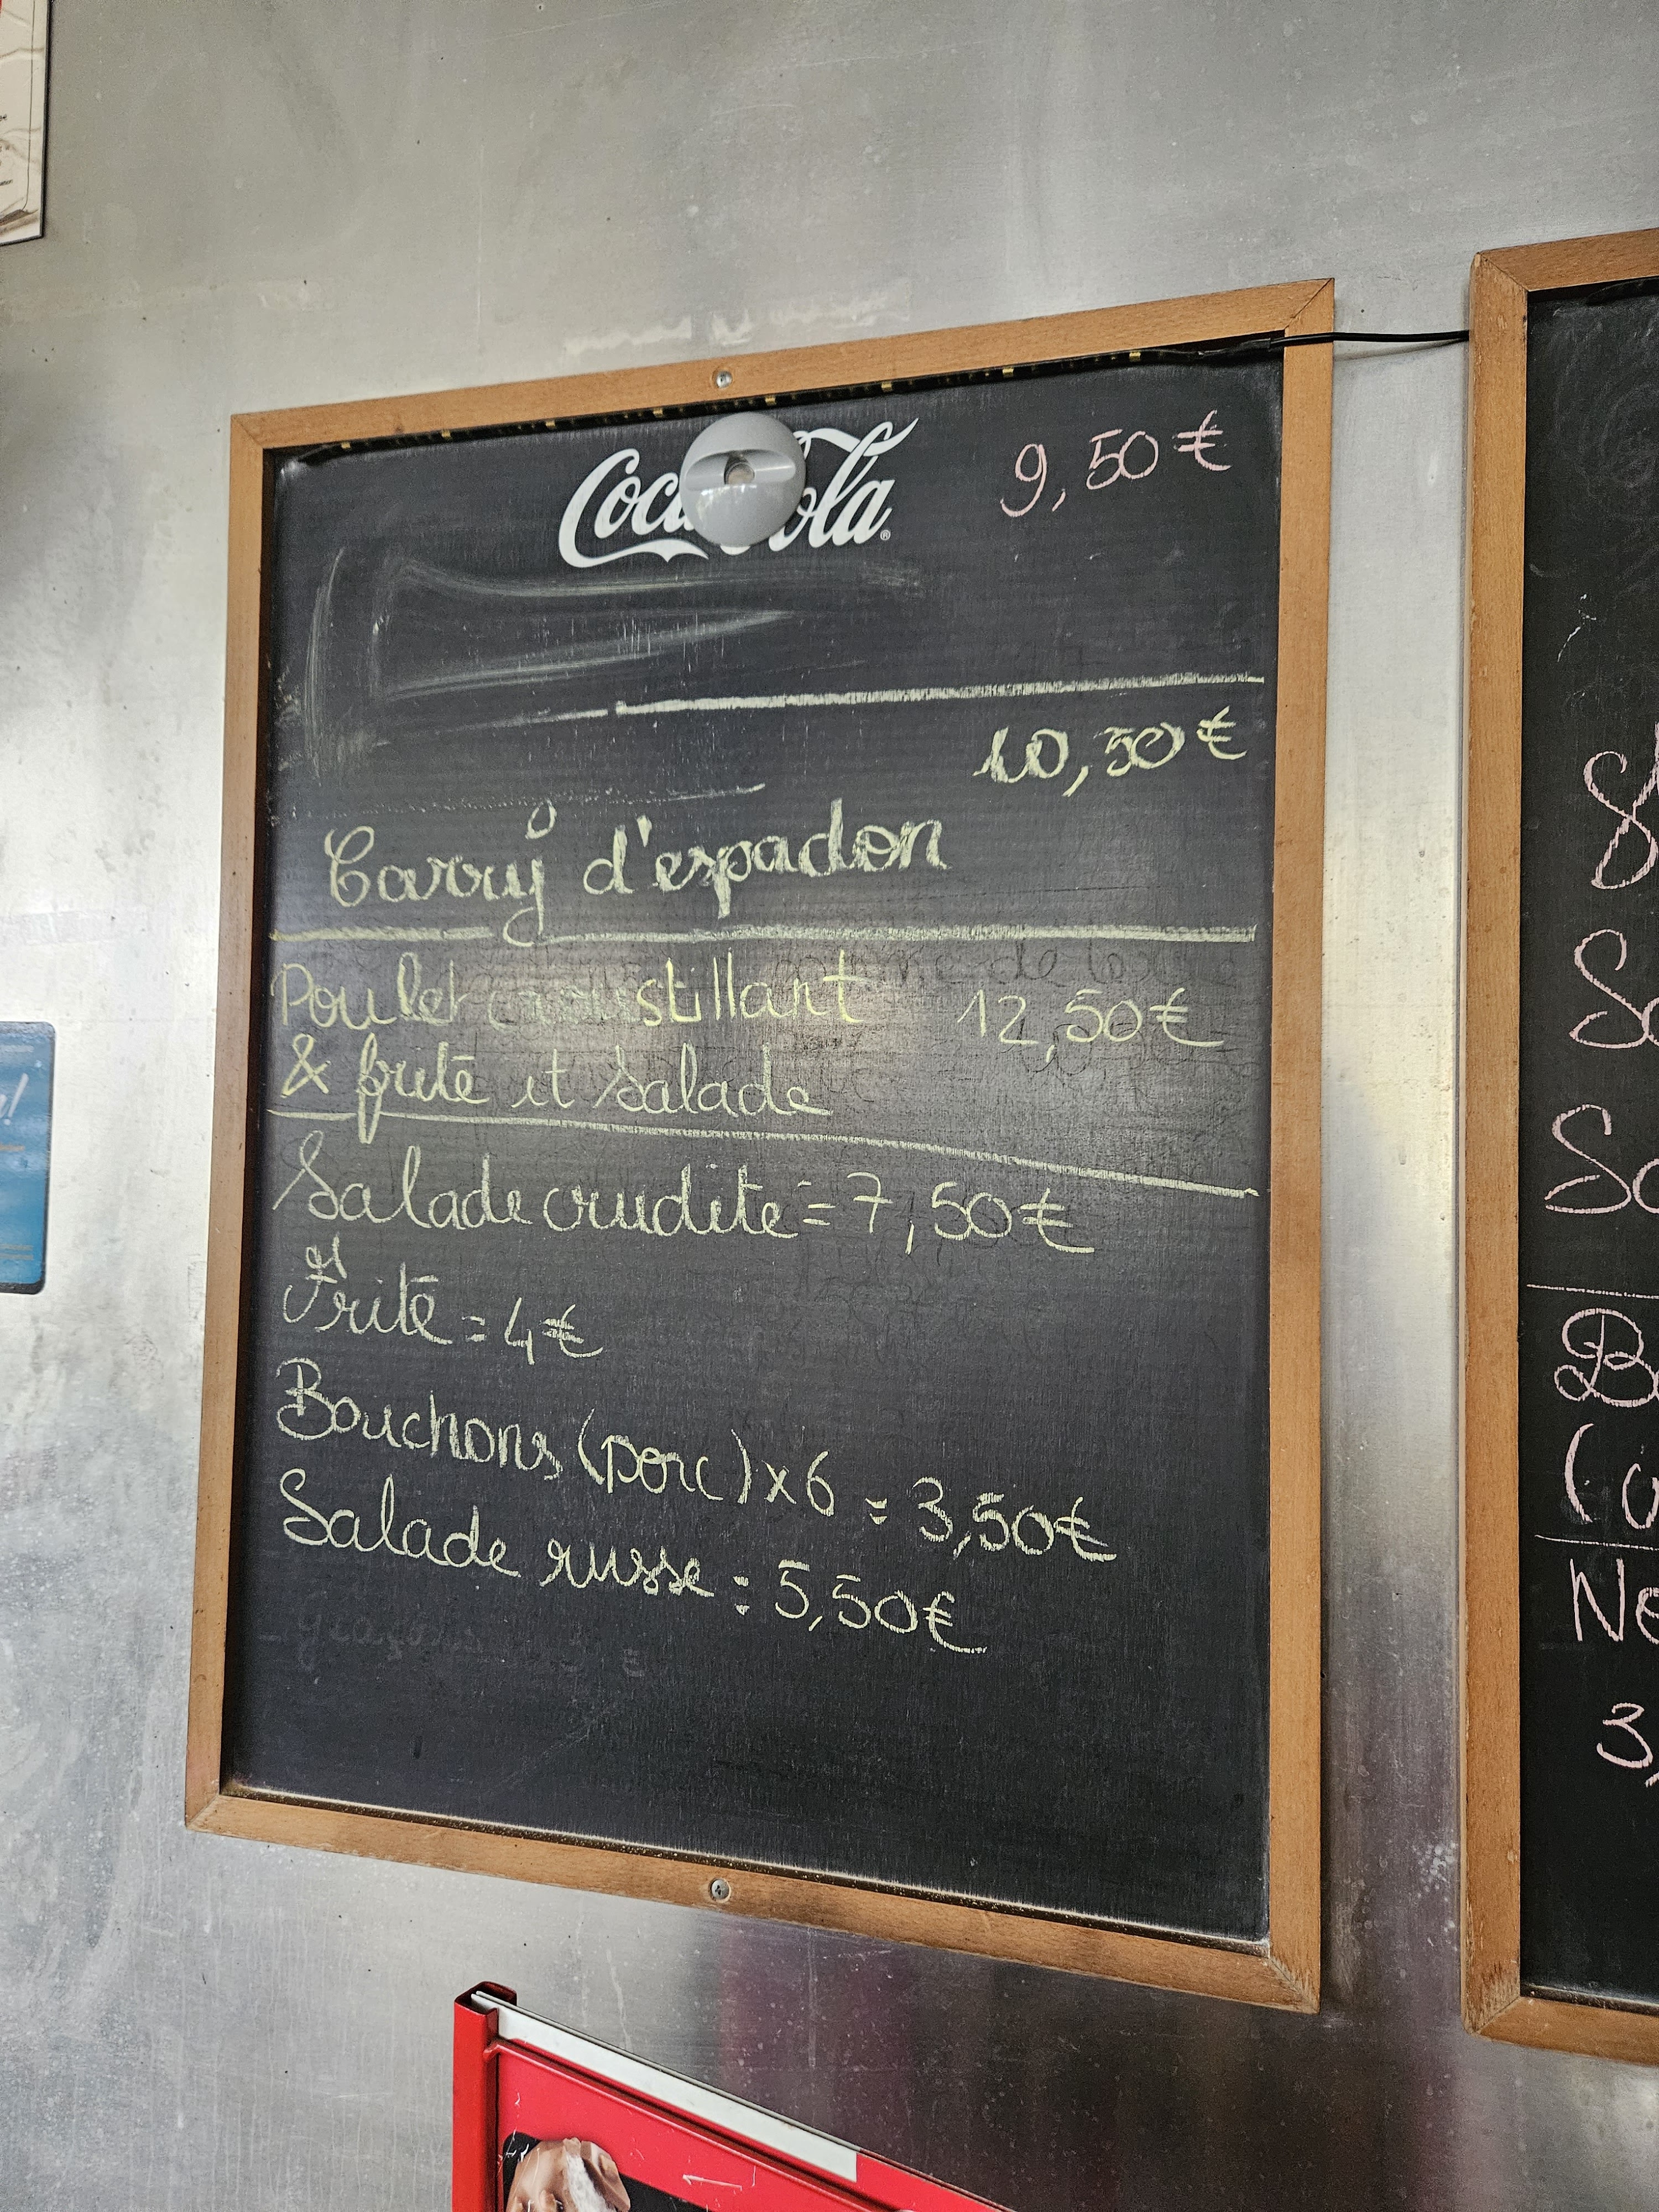 Coca-Cola
9,50€
10,50€
Carry d'espadon
Poulet croustillant 12,50€
& frite et salade
Salade crudité = 7,50€
Frite = 4€
Bouchons (porc) x 6 = 3,50€
Salade russe = 5,50€
Ne
3,